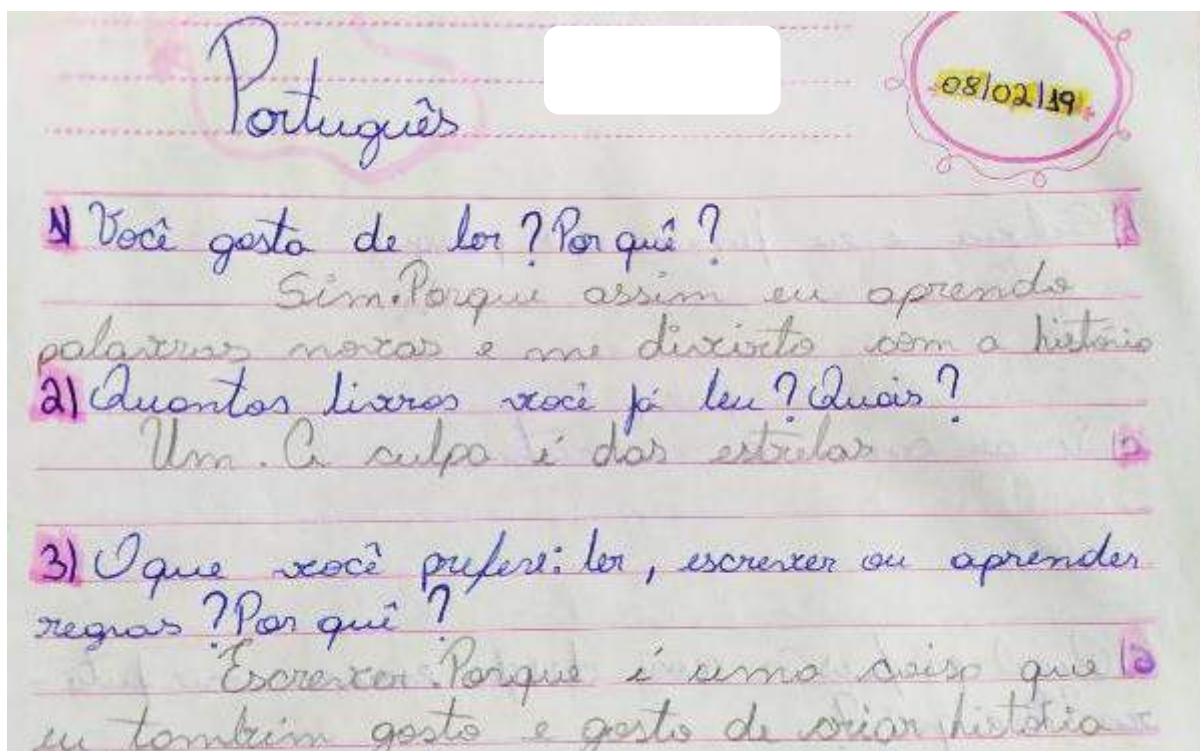 Português
08/02/19
1) Você gosta de ler? Por quê?
Sim. Porque assim eu aprendo
palavras novas e me divirto com a história
2) Quantos livros você já leu? Quais?
Um. A culpa é das estrelas
3) O que você prefere: ler, escrever ou aprender
regras? Por quê?
Escrever. Porque é uma coisa que
eu também gosto e gosto de criar história